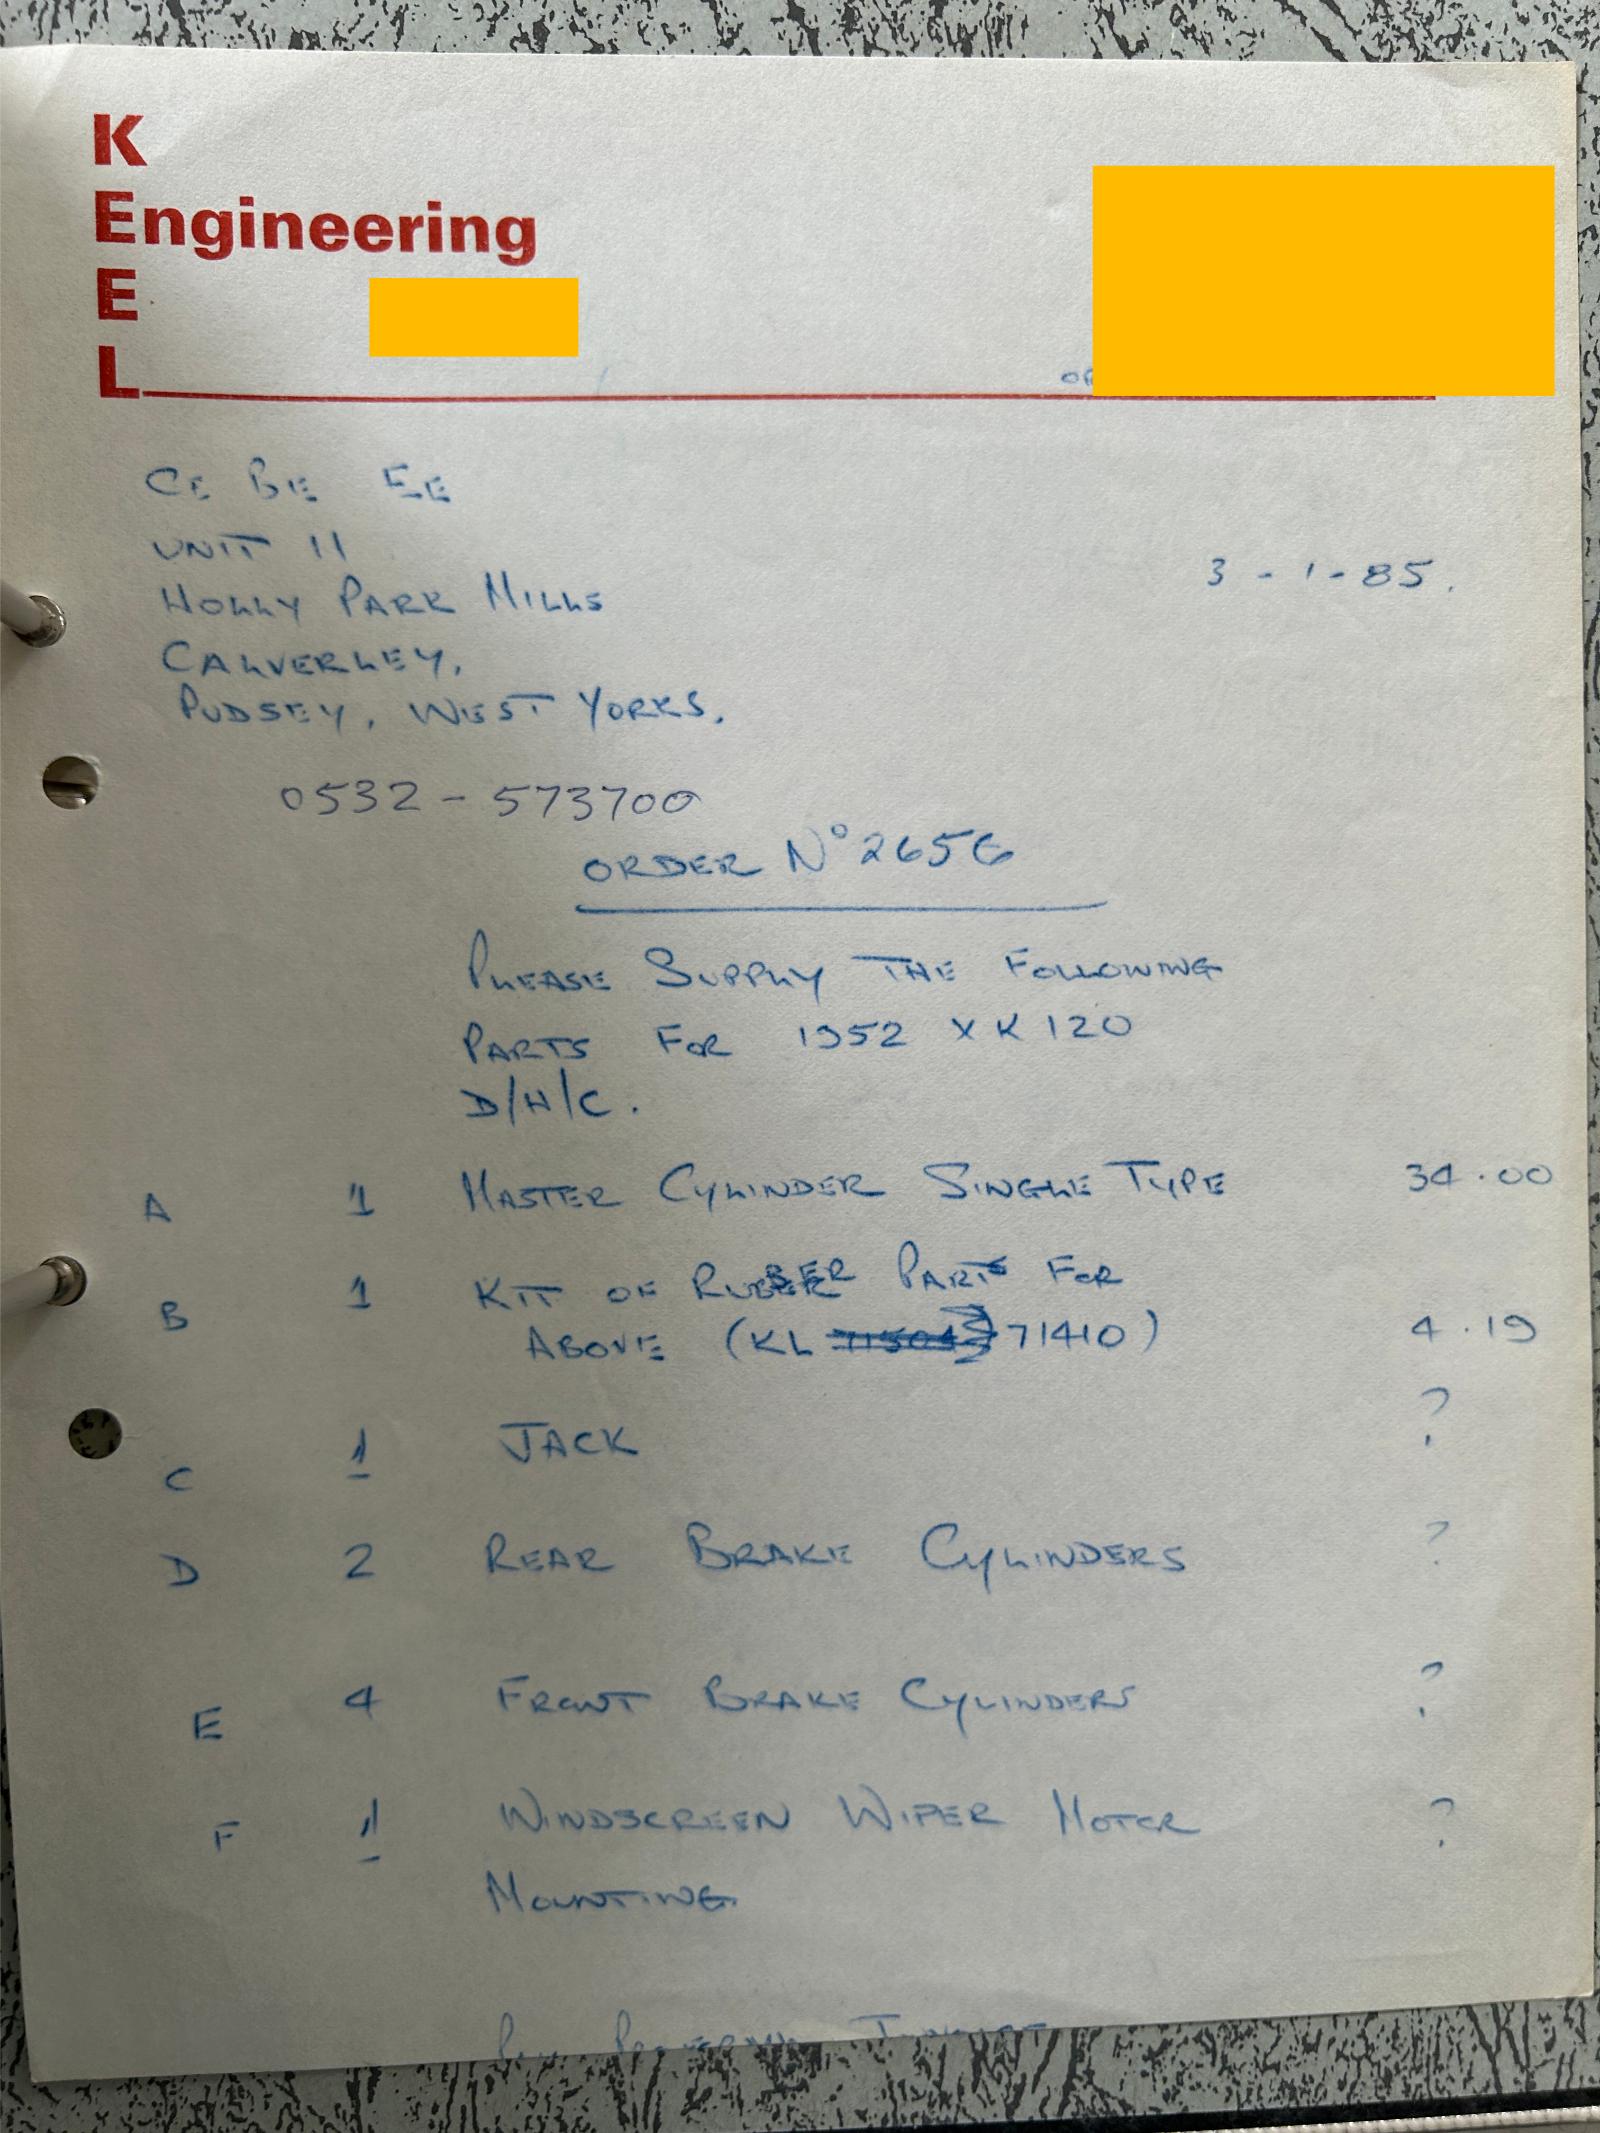 K
Engineering
E
L
CE BE EE
UNIT 11
HOLLY PARK MILLS
CALVERLEY,
PUDSEY, WEST YORKS.
3-1-85.
0532-573700
ORDER Nº 2656
PLEASE SUPPLY THE FOLLOWING
PARTS FOR 1952 XK120
D/H/C.
A 1 MASTER CYLINDER SINGLE TYPE 34.00
B 1 KIT OF RUBBER PARTS FOR
ABOVE (KL 71410) 4.19
C 1 JACK ?
D 2 REAR BRAKE CYLINDERS ?
E 4 FRONT BRAKE CYLINDERS ?
F 1 WINDSCREEN WIPER MOTOR ?
MOUNTING